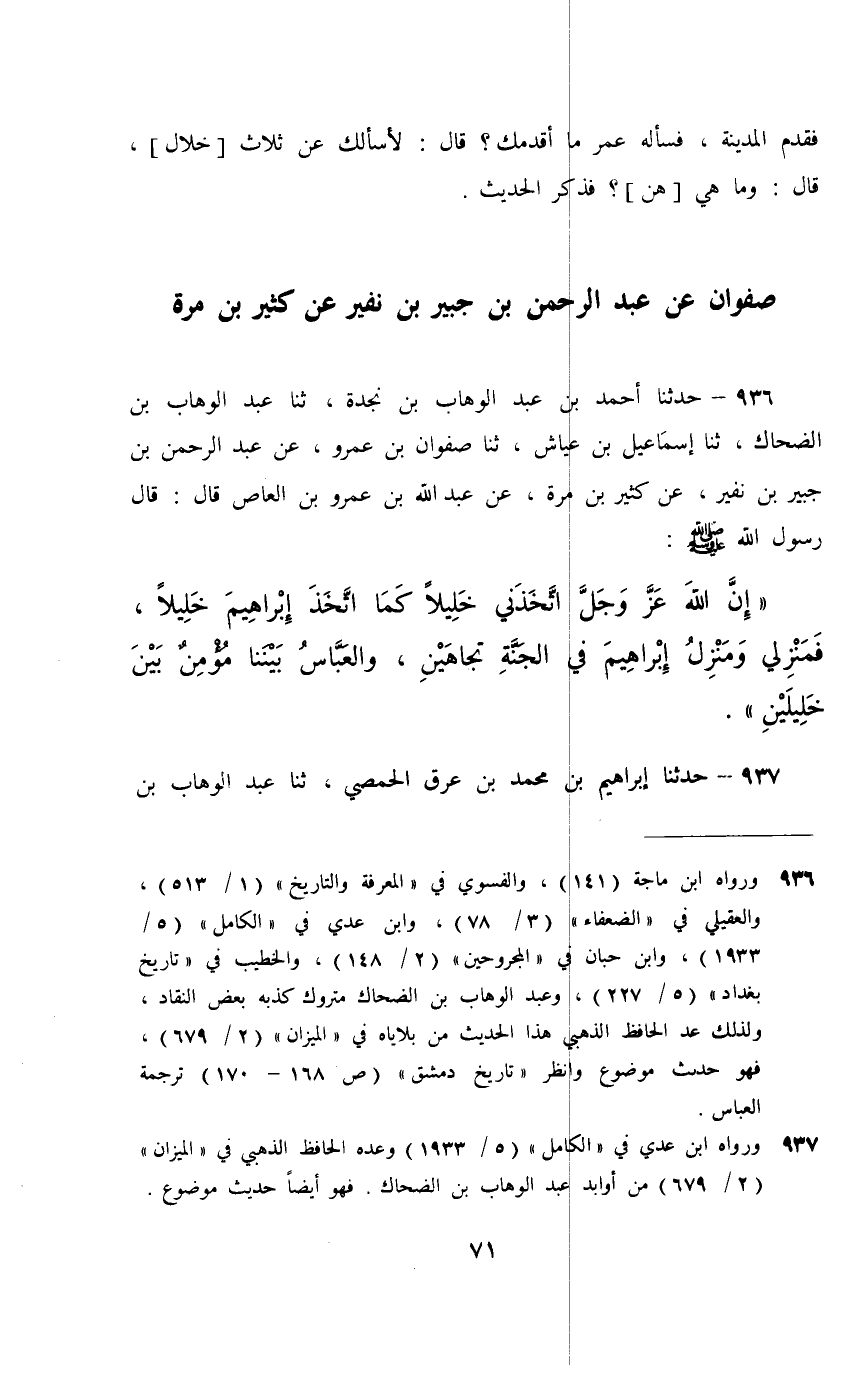 فقدم المدينة ، فسأله عمر ما أقدمك ؟ قال : لأسألك عن ثلاث [ خلال ] ،
قال : وما هي [ هن ] ؟ فذكر الحديث .
صفوان عن عبد الرحمن بن جبير بن نفير عن كثير بن مرة
٩٣٦ – حدثنا أحمد بن عبد الوهاب بن نجدة ، ثنا عبد الوهاب بن
الضحاك ، ثنا إسمَاعيل بن عياش ، ثنا صفوان بن عمرو ، عن عبد الرحمن بن
جبير بن نفير ، عن كثير بن مرة ، عن عبد الله بن عمرو بن العاص قال : قال
رسول الله ﷺ :
« إِنَّ اللهَ عَزَّ وَجَلَّ اتَّخَذَني خَلِيلاً كَمَا اتَّخَذَ إِبْراهِيمَ خَلِيلاً ،
فَمَنْزِلي وَمَنْزِلُ إِبْراهِيمَ في الجَنَّةِ تجاهَيْنِ ، والعَبَّاسُ بَيْنَنا مُؤْمِنٌ بَيْنَ
خَلِيلَيْنِ » .
٩٣٧ – حدثنا إبراهيم بن محمد بن عرق الحمصي ، ثنا عبد الوهاب بن
٩٣٦ ورواه ابن ماجة ( ١٤١ ) ، والفسوي في « المعرفة والتاريخ » ( ١ / ٥١٣ ) ،
والعقيلي في « الضعفاء » ( ٣ / ٧٨ ) ، وابن عدي في « الكامل » ( ٥ /
١٩٣٣ ) ، وابن حبان في « المجروحين » ( ٢ / ١٤٨ ) ، والخطيب في « تاريخ
بغداد » ( ٥ / ٢٢٧ ) ، وعبد الوهاب بن الضحاك متروك كذبه بعض النقاد ،
ولذلك عد الحافظ الذهبي هذا الحديث من بلاياه في « الميزان » ( ٢ / ٦٧٩ ) ،
فهو حديث موضوع وانظر « تاريخ دمشق » ( ص ١٦٨ – ١٧٠ ) ترجمة
العباس .
٩٣٧ ورواه ابن عدي في « الكامل » ( ٥ / ١٩٣٣ ) وعده الحافظ الذهبي في « الميزان »
( ٢ / ٦٧٩ ) من أوابد عبد الوهاب بن الضحاك . فهو أيضاً حديث موضوع .
٧١